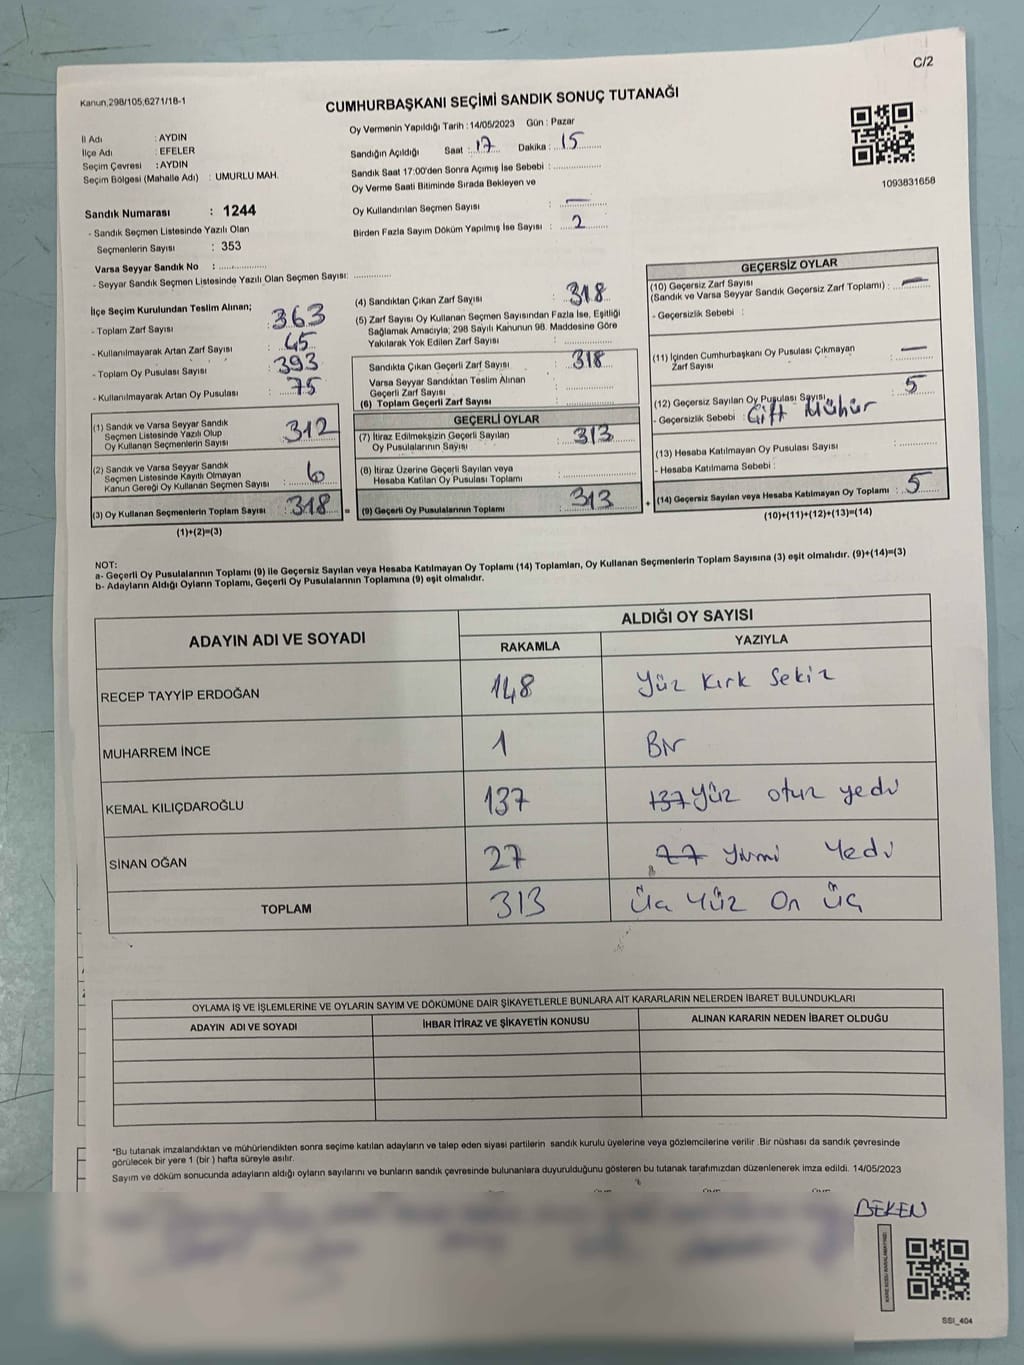 C/2
Kanun,298/105,6271/18-1
CUMHURBAŞKANI SEÇİMİ SANDIK SONUÇ TUTANAĞI
İl Adı : AYDIN
İlçe Adı : EFELER
Seçim Çevresi : AYDIN
Seçim Bölgesi (Mahalle Adı) : UMURLU MAH.
Sandık Numarası : 1244
- Sandık Seçmen Listesinde Yazılı Olan
Seçmenlerin Sayısı : 353
Varsa Seyyar Sandık No :
- Seyyar Sandık Seçmen Listesinde Yazılı Olan Seçmen Sayısı:
Oy Vermenin Yapıldığı Tarih : 14/05/2023 Gün : Pazar
Sandığın Açıldığı Saat : 17 Dakika : 15
Sandık Saat 17:00'den Sonra Açımış İse Sebebi :
Oy Verme Saati Bitiminde Sırada Bekleyen ve
Oy Kullandırılan Seçmen Sayısı : —
Birden Fazla Sayım Döküm Yapılmış İse Sayısı : 2
1093831658
İlçe Seçim Kurulundan Teslim Alınan;
- Toplam Zarf Sayısı : 363
- Kullanılmayarak Artan Zarf Sayısı : 45
- Toplam Oy Pusulası Sayısı : 393
- Kullanılmayarak Artan Oy Pusulası : 75
(1) Sandık ve Varsa Seyyar Sandık
Seçmen Listesinde Yazılı Olup
Oy Kullanan Seçmenlerin Sayısı : 312
(2) Sandık ve Varsa Seyyar Sandık
Seçmen Listesinde Kayıtlı Olmayan
Kanun Gereği Oy Kullanan Seçmen Sayısı : 6
(3) Oy Kullanan Seçmenlerin Toplam Sayısı : 318 =
(1)+(2)=(3)
(4) Sandıktan Çıkan Zarf Sayısı : 318
(5) Zarf Sayısı Oy Kullanan Seçmen Sayısından Fazla İse, Eşitliği
Sağlamak Amacıyla; 298 Sayılı Kanunun 98. Maddesine Göre
Yakılarak Yok Edilen Zarf Sayısı :
Sandıkta Çıkan Geçerli Zarf Sayısı : 318
Varsa Seyyar Sandıktan Teslim Alınan
Geçerli Zarf Sayısı :
(6) Toplam Geçerli Zarf Sayısı :
GEÇERLİ OYLAR
(7) İtiraz Edilmeksizin Geçerli Sayılan
Oy Pusulalarının Sayısı : 313
(8) İtiraz Üzerine Geçerli Sayılan veya
Hesaba Katılan Oy Pusulası Toplamı :
(9) Geçerli Oy Pusulalarının Toplamı : 313 +
GEÇERSİZ OYLAR
(10) Geçersiz Zarf Sayısı
(Sandık ve Varsa Seyyar Sandık Geçersiz Zarf Toplamı) : —
- Geçersizlik Sebebi :
(11) İçinden Cumhurbaşkanı Oy Pusulası Çıkmayan
Zarf Sayısı : —
(12) Geçersiz Sayılan Oy Pusulası Sayısı : 5
- Geçersizlik Sebebi : Çift Mühür
(13) Hesaba Katılmayan Oy Pusulası Sayısı :
- Hesaba Katılmama Sebebi :
(14) Geçersiz Sayılan veya Hesaba Katılmayan Oy Toplamı : 5
(10)+(11)+(12)+(13)=(14)
NOT:
a- Geçerli Oy Pusulalarının Toplamı (9) ile Geçersiz Sayılan veya Hesaba Katılmayan Oy Toplamı (14) Toplamları, Oy Kullanan Seçmenlerin Toplam Sayısına (3) eşit olmalıdır. (9)+(14)=(3)
b- Adayların Aldığı Oyların Toplamı, Geçerli Oy Pusulalarının Toplamına (9) eşit olmalıdır.
ADAYIN ADI VE SOYADI ALDIĞI OY SAYISI
RAKAMLA YAZIYLA
RECEP TAYYİP ERDOĞAN 148 Yüz Kırk Sekiz
MUHARREM İNCE 1 Bir
KEMAL KILIÇDAROĞLU 137 137 yüz otuz yedi
SİNAN OĞAN 27 27 Yirmi Yedi
TOPLAM 313 Üç Yüz On Üç
OYLAMA İŞ VE İŞLEMLERİNE VE OYLARIN SAYIM VE DÖKÜMÜNE DAİR ŞİKAYETLERLE BUNLARA AİT KARARLARIN NELERDEN İBARET BULUNDUKLARI
ADAYIN ADI VE SOYADI İHBAR İTİRAZ VE ŞİKAYETİN KONUSU ALINAN KARARIN NEDEN İBARET OLDUĞU
*Bu tutanak imzalandıktan ve mühürlendikten sonra seçime katılan adayların ve talep eden siyasi partilerin sandık kurulu üyelerine veya gözlemcilerine verilir .Bir nüshası da sandık çevresinde
görülecek bir yere 1 (bir ) hafta süreyle asılır.
Sayım ve döküm sonucunda adayların aldığı oyların sayılarını ve bunların sandık çevresinde bulunanlara duyurulduğunu gösteren bu tutanak tarafımızdan düzenlenerek imza edildi. 14/05/2023
BEKEN
KARE KODU KARALAMAYINIZ!
SSI_404